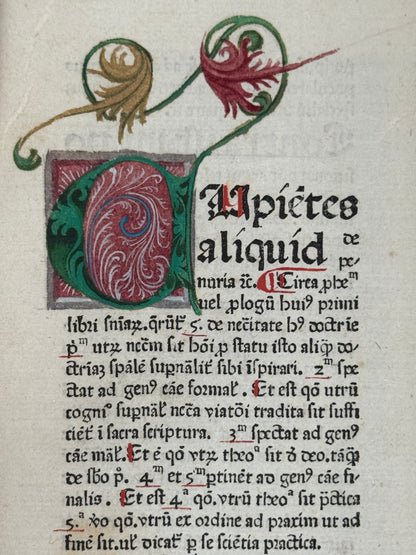 CUpiẽtes
aliquid de
pe-
nuria ⁊c̃. ¶ Circa ꝓheͫ
uel ꝓlogũ huiꝰ primi
libri sniaꝝ. q̃rũt̃ 5. de nec̃itate hꝰ doctr̃ie
pͫ utꝝ necc̃m sit hõi ꝓ statu isto aliq̃ꝫ do-
ctrinaꝫ sp̃alẽ supñalit̃ sibi ĩspirari. 2ͫ spe-
ctat ad genꝰ cãe formal̃. Et est qõ utrũ
cognĩo supñal̃ necc̃a viatõi tradita sit suffi
ciẽt̃ ĩ sacra scriptura. 3ͫ spectat ad genꝰ
cãe mãl̃. Et ẽ qõ vtꝝ theoᵃ sit ð deo. tãqꝫ
de sb̃o pͦ. 4ͫ et 5ͫ ꝑtinẽt ad genꝰ cãe fi-
nalis. Et est 4ᵃ qõ. vtrũ theoᵃ sit ꝑ̃ctica
5.ᵃ ꝟo qõ. vtrũ ex ordine ad praxim ut ad
finẽ sit. ul̃ dicat̃ ꝑ se sciẽtia practica.